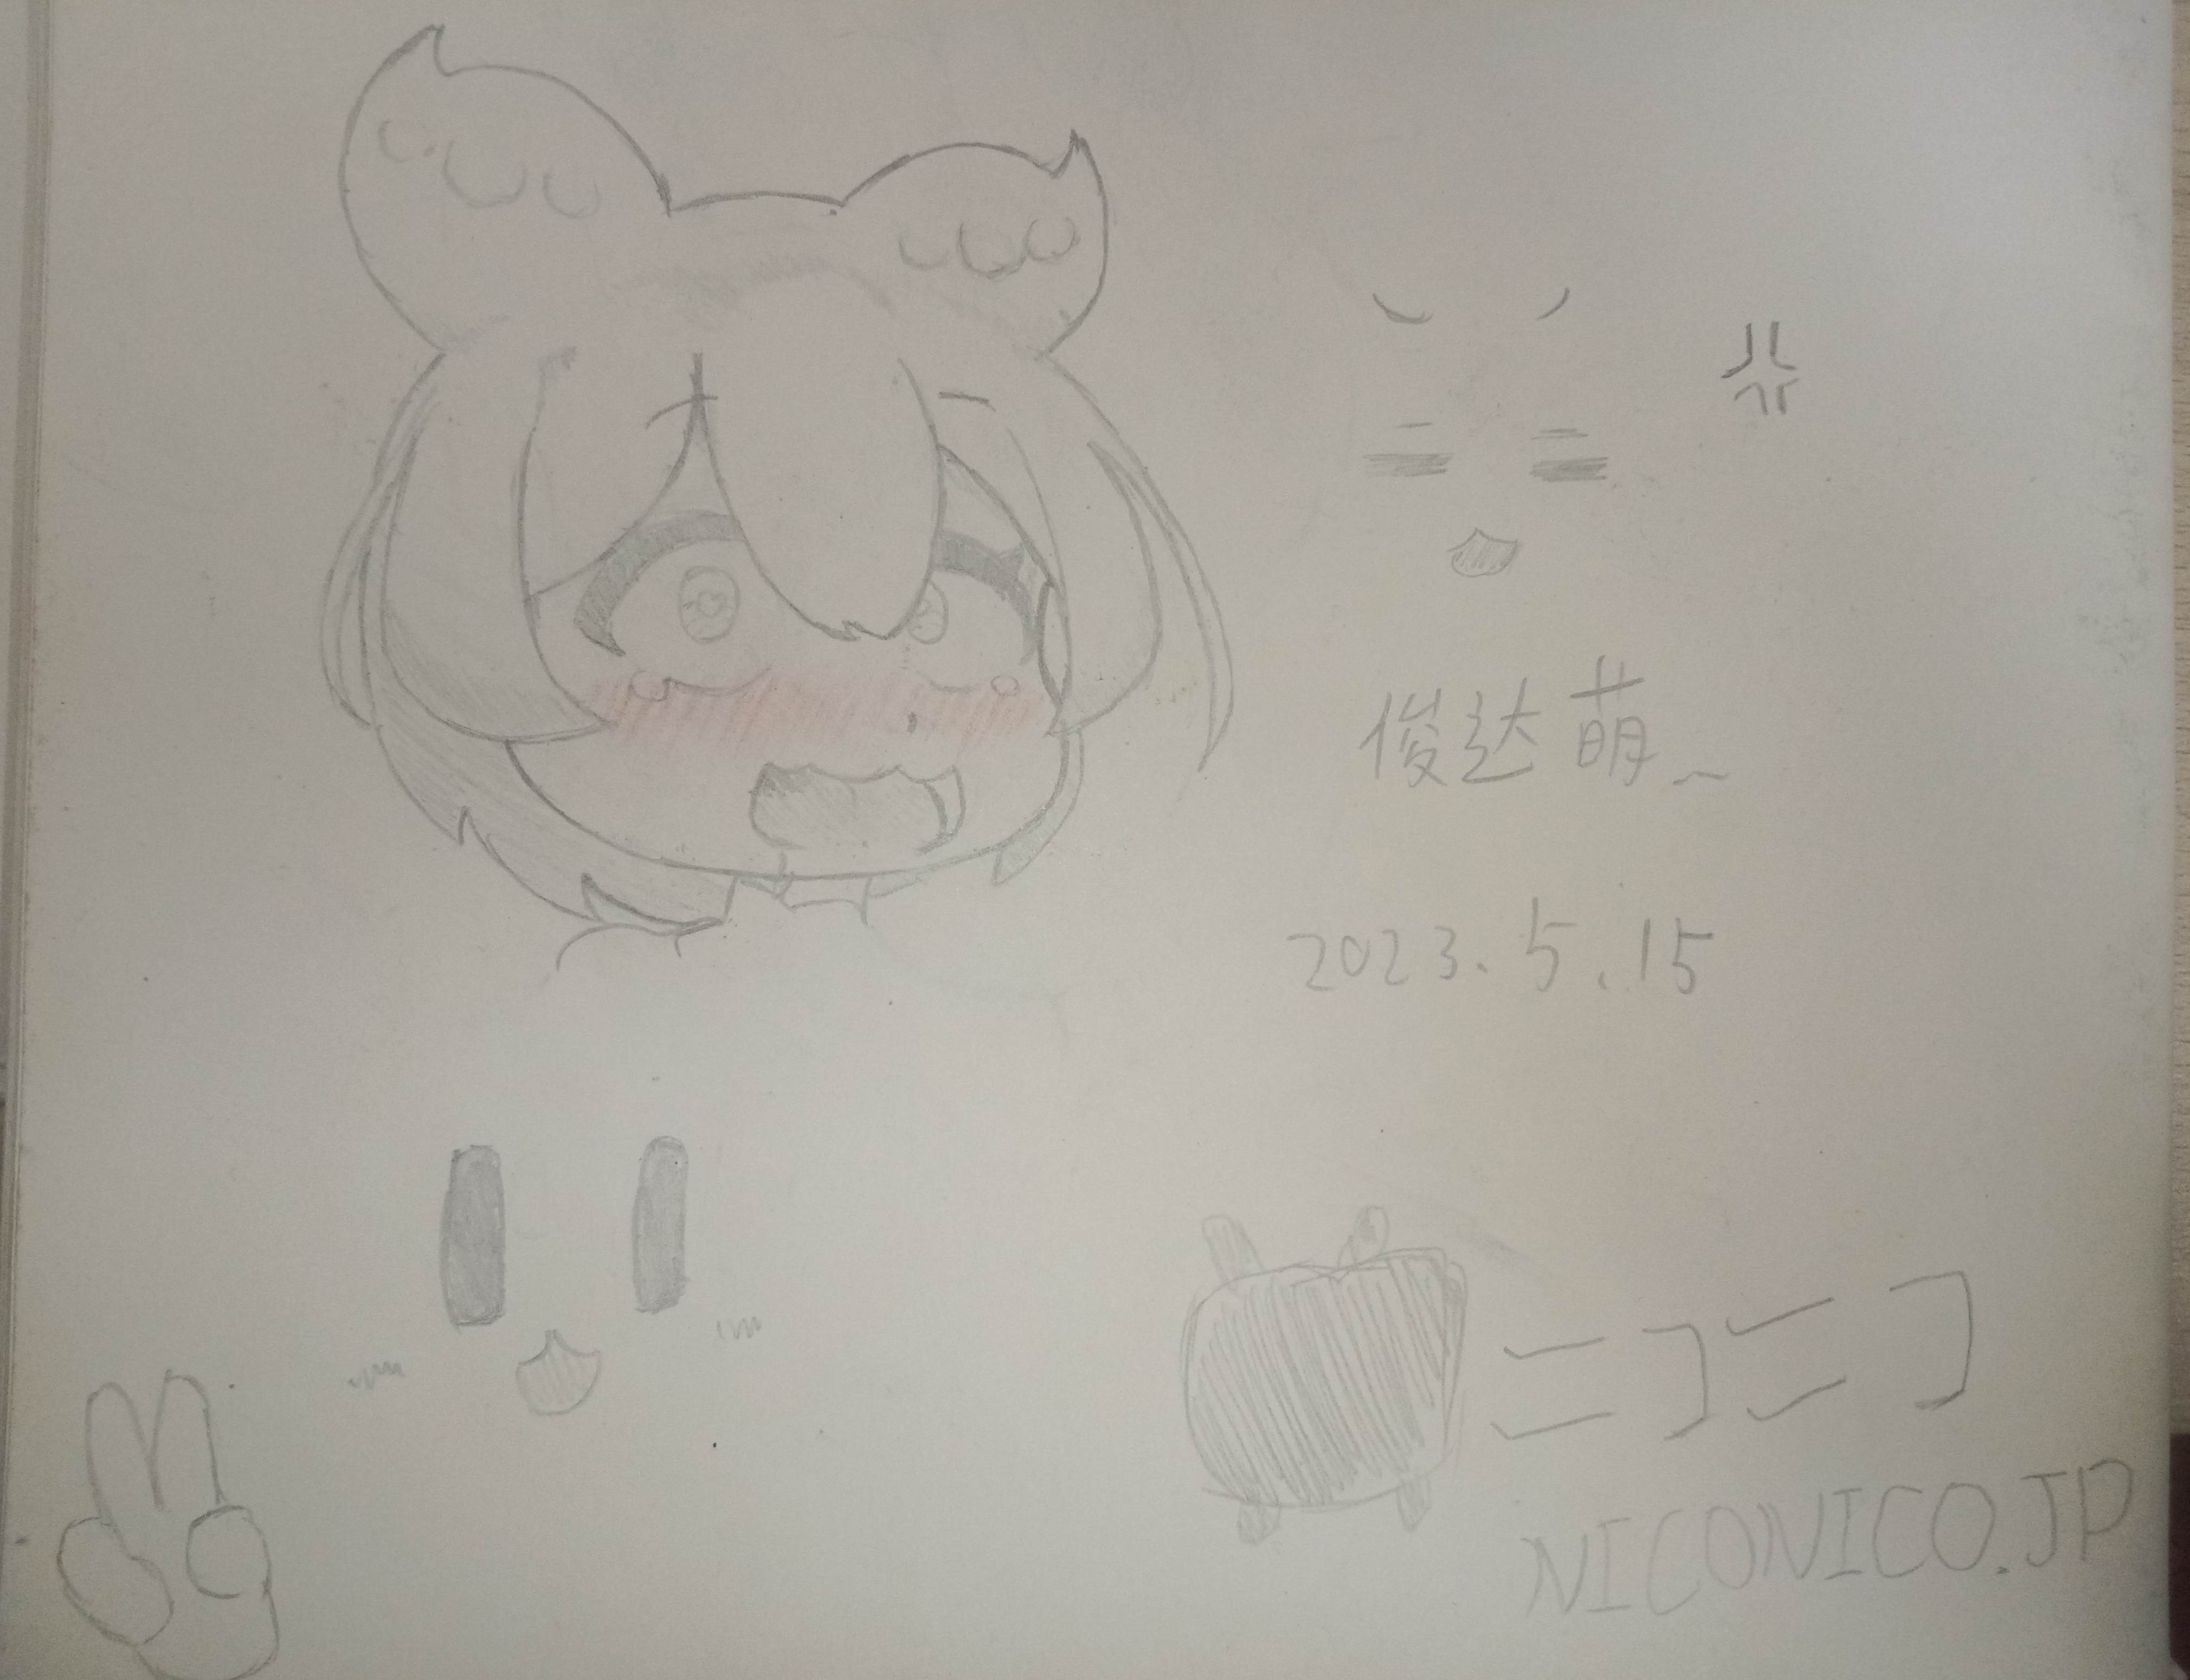 俊达萌~
2023.5.15
ニコニコ
NICONICO.JP